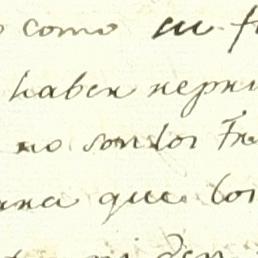 como en
haber repri
no son los Fra
que los